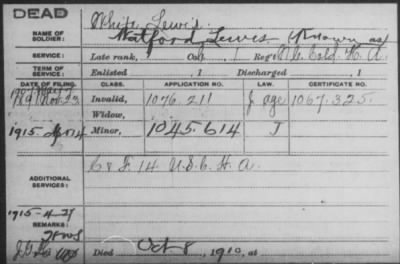 DEAD
White, Lewis.
NAME OF SOLDIER: Watford Lewis (Known as
SERVICE: Late rank, Co. , 1 Reg't U.S. Cold. H. A.
TERM OF SERVICE: Enlisted , 1 Discharged , 1
DATE OF FILING. CLASS. APPLICATION NO. LAW. CERTIFICATE NO.
Nov. 23 Invalid, 1076.211 J age 1067.325.
Widow,
1915 14 Minor, 1045.614 J
ADDITIONAL SERVICES: C & F. 14 U.S.C.H.A.
1915-4-27
REMARKS:
Died Oct 8, 1910, at